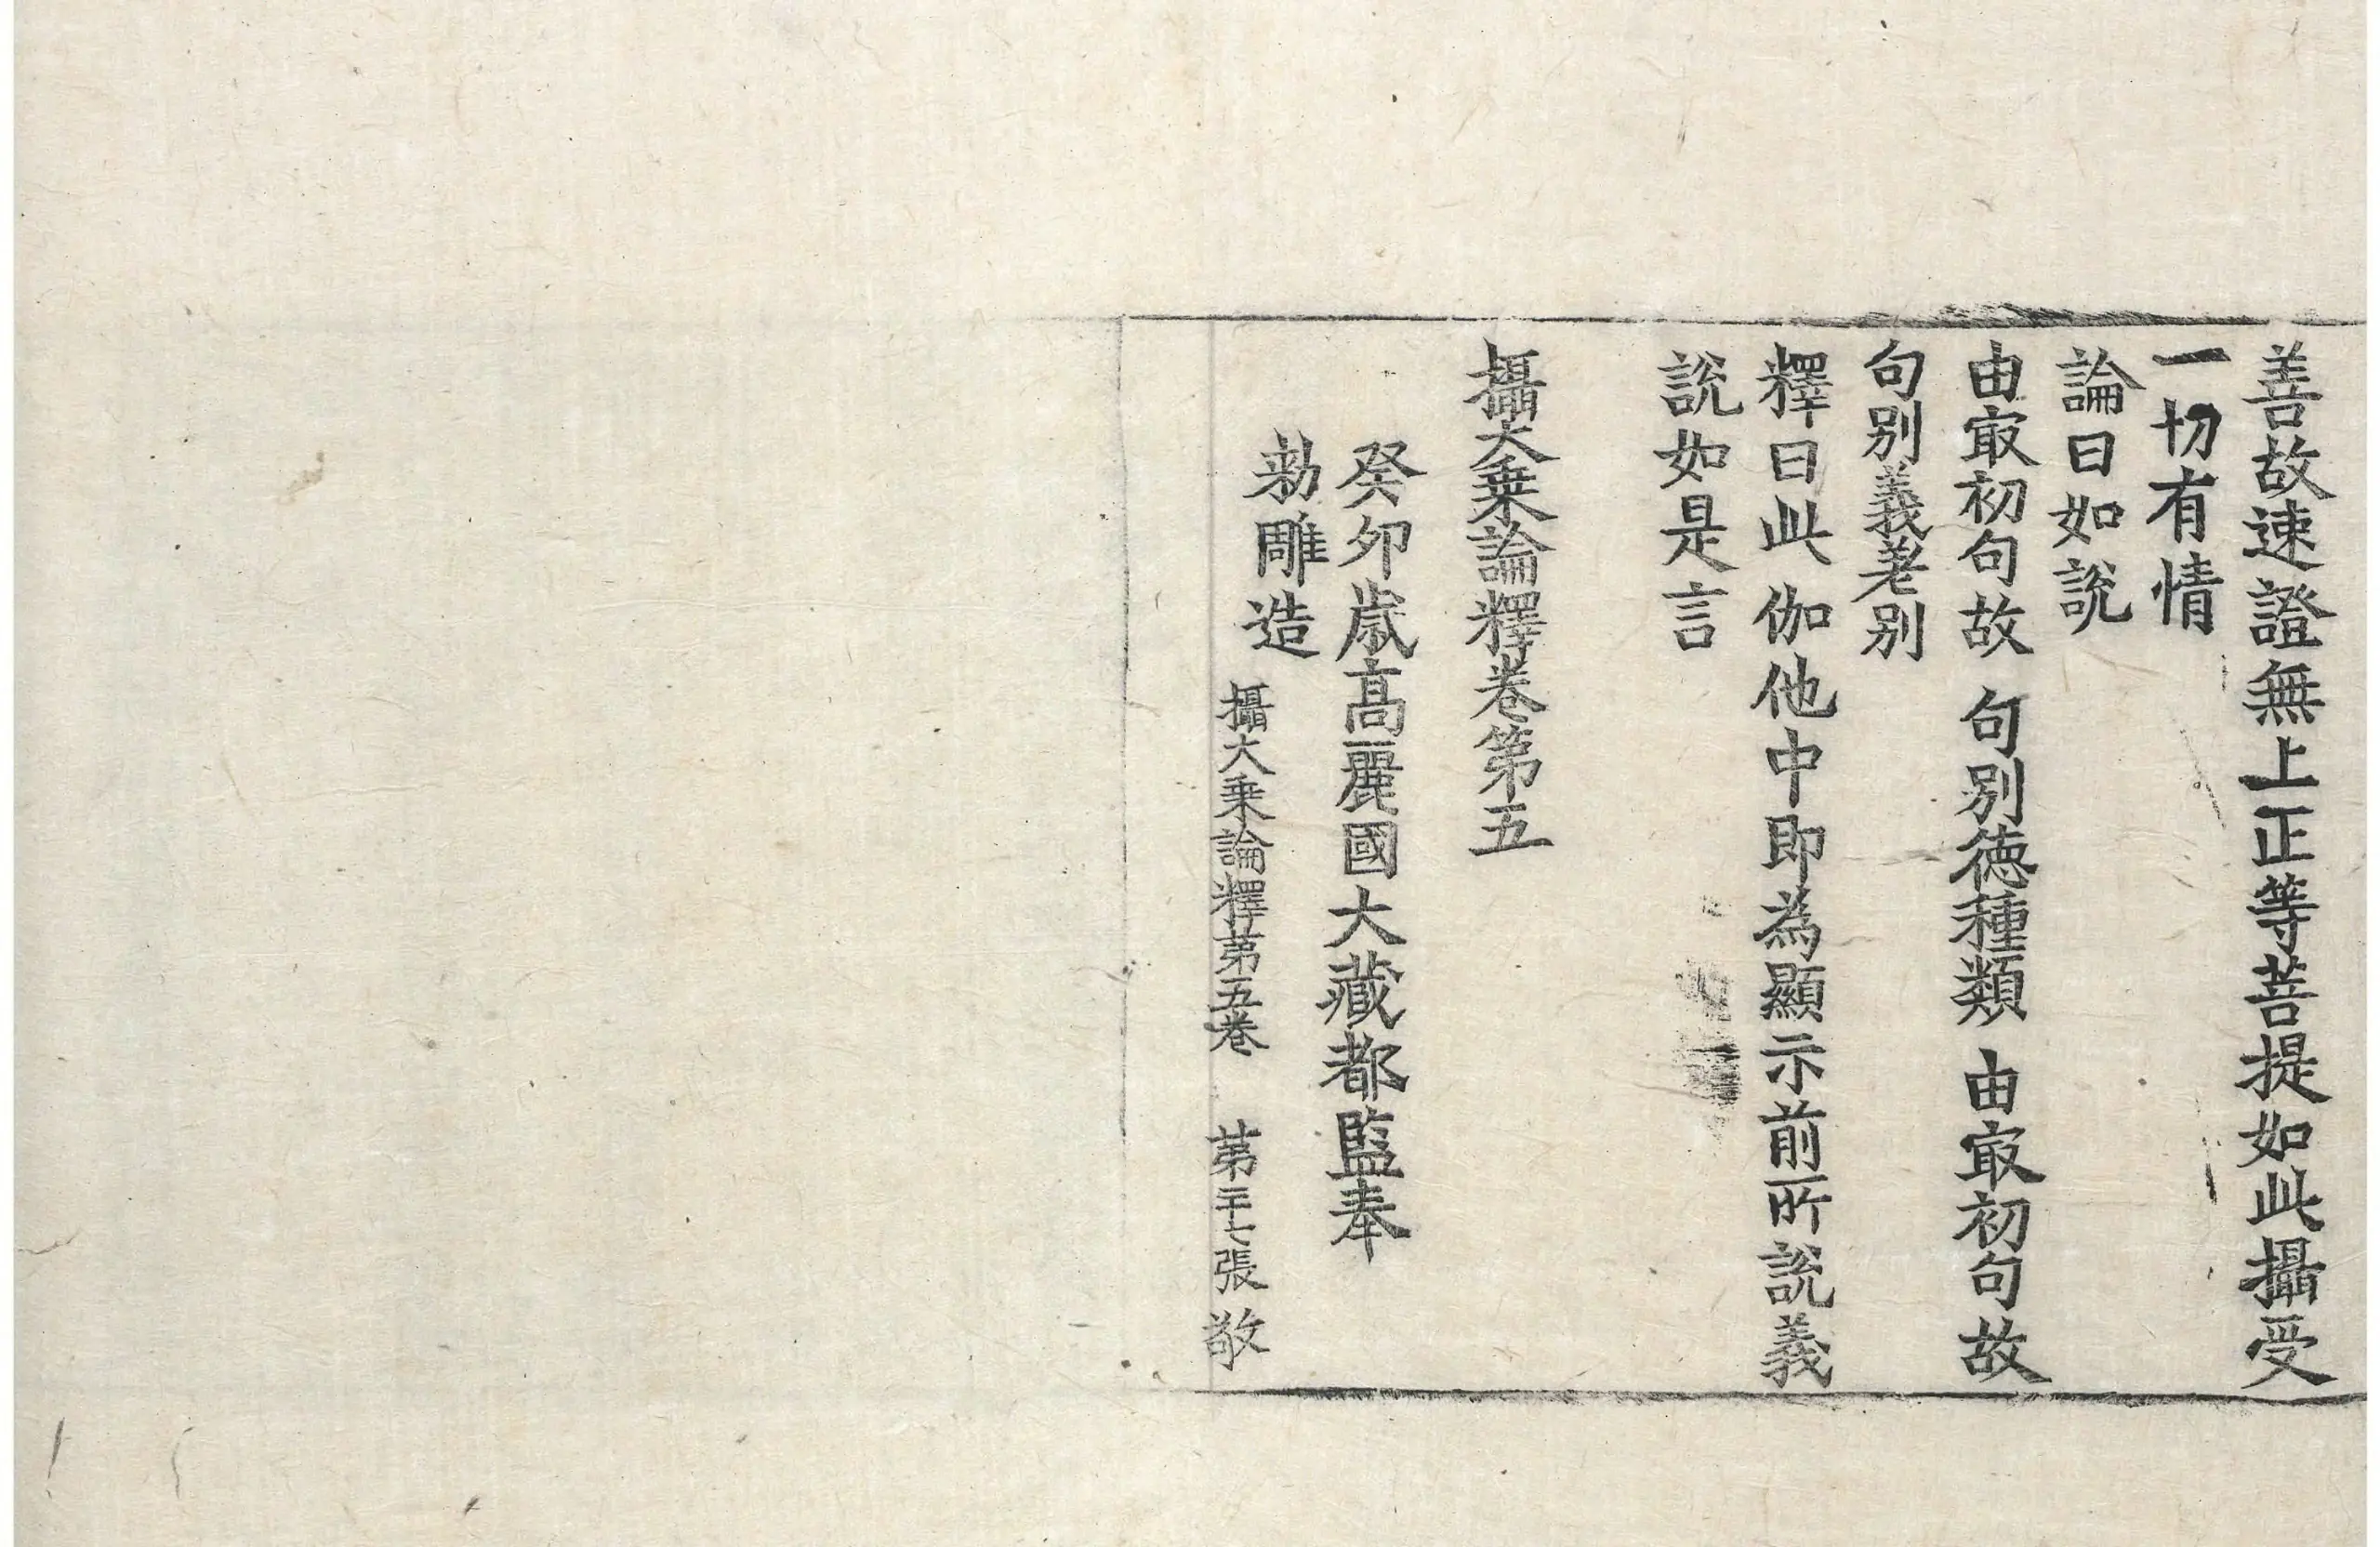 善故速證無上正等菩提如此攝受
一切有情
論曰如說
由㝡初句故 句別徳種類 由㝡初句故
句別義差別
釋曰此伽他中即為顯示前所說義
說如是言
攝大乗論釋卷第五
癸卯歲高麗國大藏都監奉
勑雕造
攝大乗論釋苐五卷 苐二十七張 敬